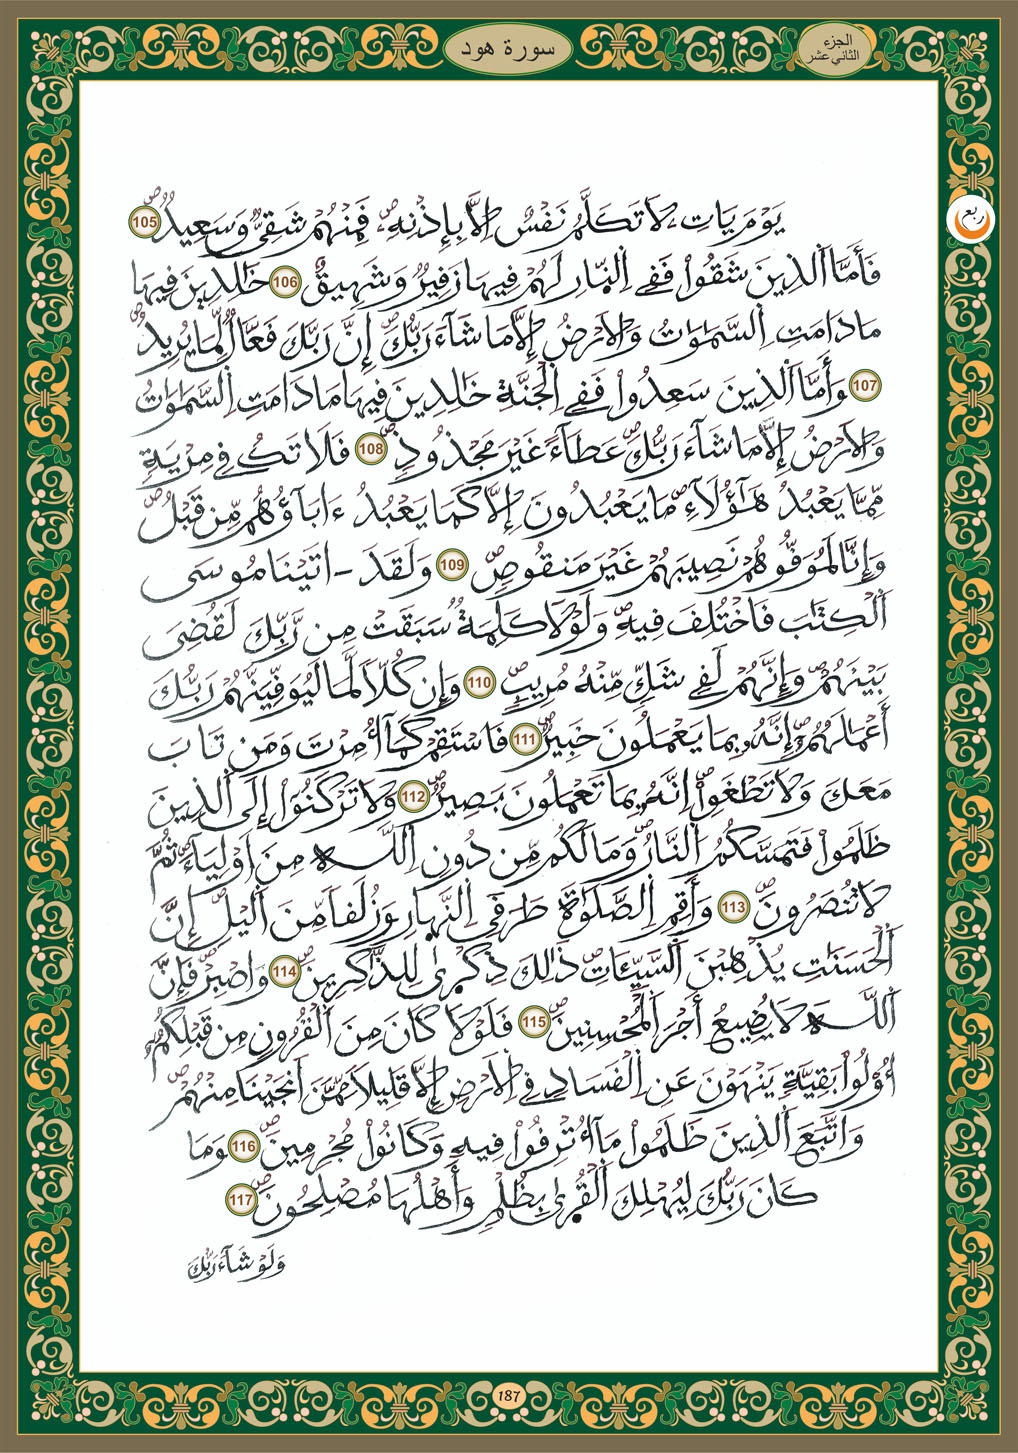 الجزء
الثاني عشر
سورة هود
ربع
يَوْمَ يَاتِۦ لَا تَكَلَّمُ نَفْسٌ اِلَّا بِإِذْنِهِۦۖ فَمِنْهُمْ شَقِيٌّ وَسَعِيدٌۖ 105
فَأَمَّا اَلذِينَ شَقُواْ فَفِے اِلنّ۪ارِ لَهُمْ فِيهَا زَفِيرٌ وَشَهِيقٌ 106 خَٰلِدِينَ فِيهَا
مَا دَامَتِ اِلسَّمَٰوَٰتُ وَالَارْضُ إِلَّا مَا شَآءَ رَبُّكَۖ إِنَّ رَبَّكَ فَعَّالٌ لِّمَا يُرِيدُۖ
107 وَأَمَّا اَلذِينَ سَعِدُواْ فَفِے اِلْجَنَّةِ خَٰلِدِينَ فِيهَا مَا دَامَتِ اِلسَّمَٰوَٰتُ
وَالَارْضُ إِلَّا مَا شَآءَ رَبُّكَۖ عَطَآءً غَيْرَ مَجْذُوذٍۖ 108 فَلَا تَكُ فِے مِرْيَةٍ
مِّمَّا يَعْبُدُ هَٰٓؤُلَآءِۖ مَا يَعْبُدُونَ إِلَّا كَمَا يَعْبُدُ ءَابَآؤُهُم مِّن قَبْلُۖ
وَإِنَّا لَمُوَفُّوهُمْ نَصِيبَهُمْ غَيْرَ مَنقُوصٍۖ 109 وَلَقَدَ _ اتَيْنَا مُوسَى
اَلْكِتَٰبَ فَاخْتُلِفَ فِيهِۖ وَلَوْلَا كَلِمَةٌ سَبَقَتْ مِن رَّبِّكَ لَقُضِيَ
بَيْنَهُمْۖ وَإِنَّهُمْ لَفِے شَكٍّ مِّنْهُ مُرِيبٍۖ 110 وَإِن كُلّاً لَمَا لَيُوَفِّيَنَّهُمْ رَبُّكَ
أَعْمَٰلَهُمُۖۥ إِنَّهُۥ بِمَا يَعْمَلُونَ خَبِيرٌۖ 111 فَاسْتَقِمْ كَمَآ أُمِرْتَ وَمَن تَابَ
مَعَكَ وَلَا تَطْغَوِاْۖ اِنَّهُۥ بِمَا تَعْمَلُونَ بَصِيرٌۖ 112 وَلَا تَرْكَنُوٓاْ إِلَى اَلذِينَ
ظَلَمُواْ فَتَمَسَّكُمُ اُلنَّارُۖ وَمَا لَكُم مِّن دُونِ اِللَّهِ مِنَ اَوْلِيَآءَۖ ثُمَّ
لَا تُنصَرُونَۖ 113 وَأَقِمِ اِلصَّلَوٰةَ طَرَفَيِ اِلنَّهِارِ وَزُلَفاً مِّنَ اَليْلِۖ إِنَّ
اَلْحَسَنَٰتِ يُذْهِبْنَ اَلسَّيِّـَٔاتِۖ ذَٰلِكَ ذِكْرَىٰ لِلذَّٰكِرِينَۖ 114 وَاصْبِرْۖ فَإِنَّ
اَللَّهَ لَا يُضِيعُ أَجْرَ اَلْمُحْسِنِينَۖ 115 فَلَوْلَا كَانَ مِنَ اَلْقُرُونِ مِن قَبْلِكُمُۥٓ
أُوْلُواْ بَقِيَّةٍ يَنْهَوْنَ عَنِ اِلْفَسَادِ فِے اِلَارْضِ إِلَّا قَلِيلاً مِّمَّنَ اَنجَيْنَا مِنْهُمْۖ
وَاتَّبَعَ اَلذِينَ ظَلَمُواْ مَآ أُتْرِفُواْ فِيهِ وَكَانُواْ مُجْرِمِينَۖ 116 وَمَا
كَانَ رَبُّكَ لِيُهْلِكَ اَلْقُرَىٰ بِظُلْمٍ وَأَهْلُهَا مُصْلِحُونَۖ 117
وَلَوْ شَآءَ رَبُّكَ
187